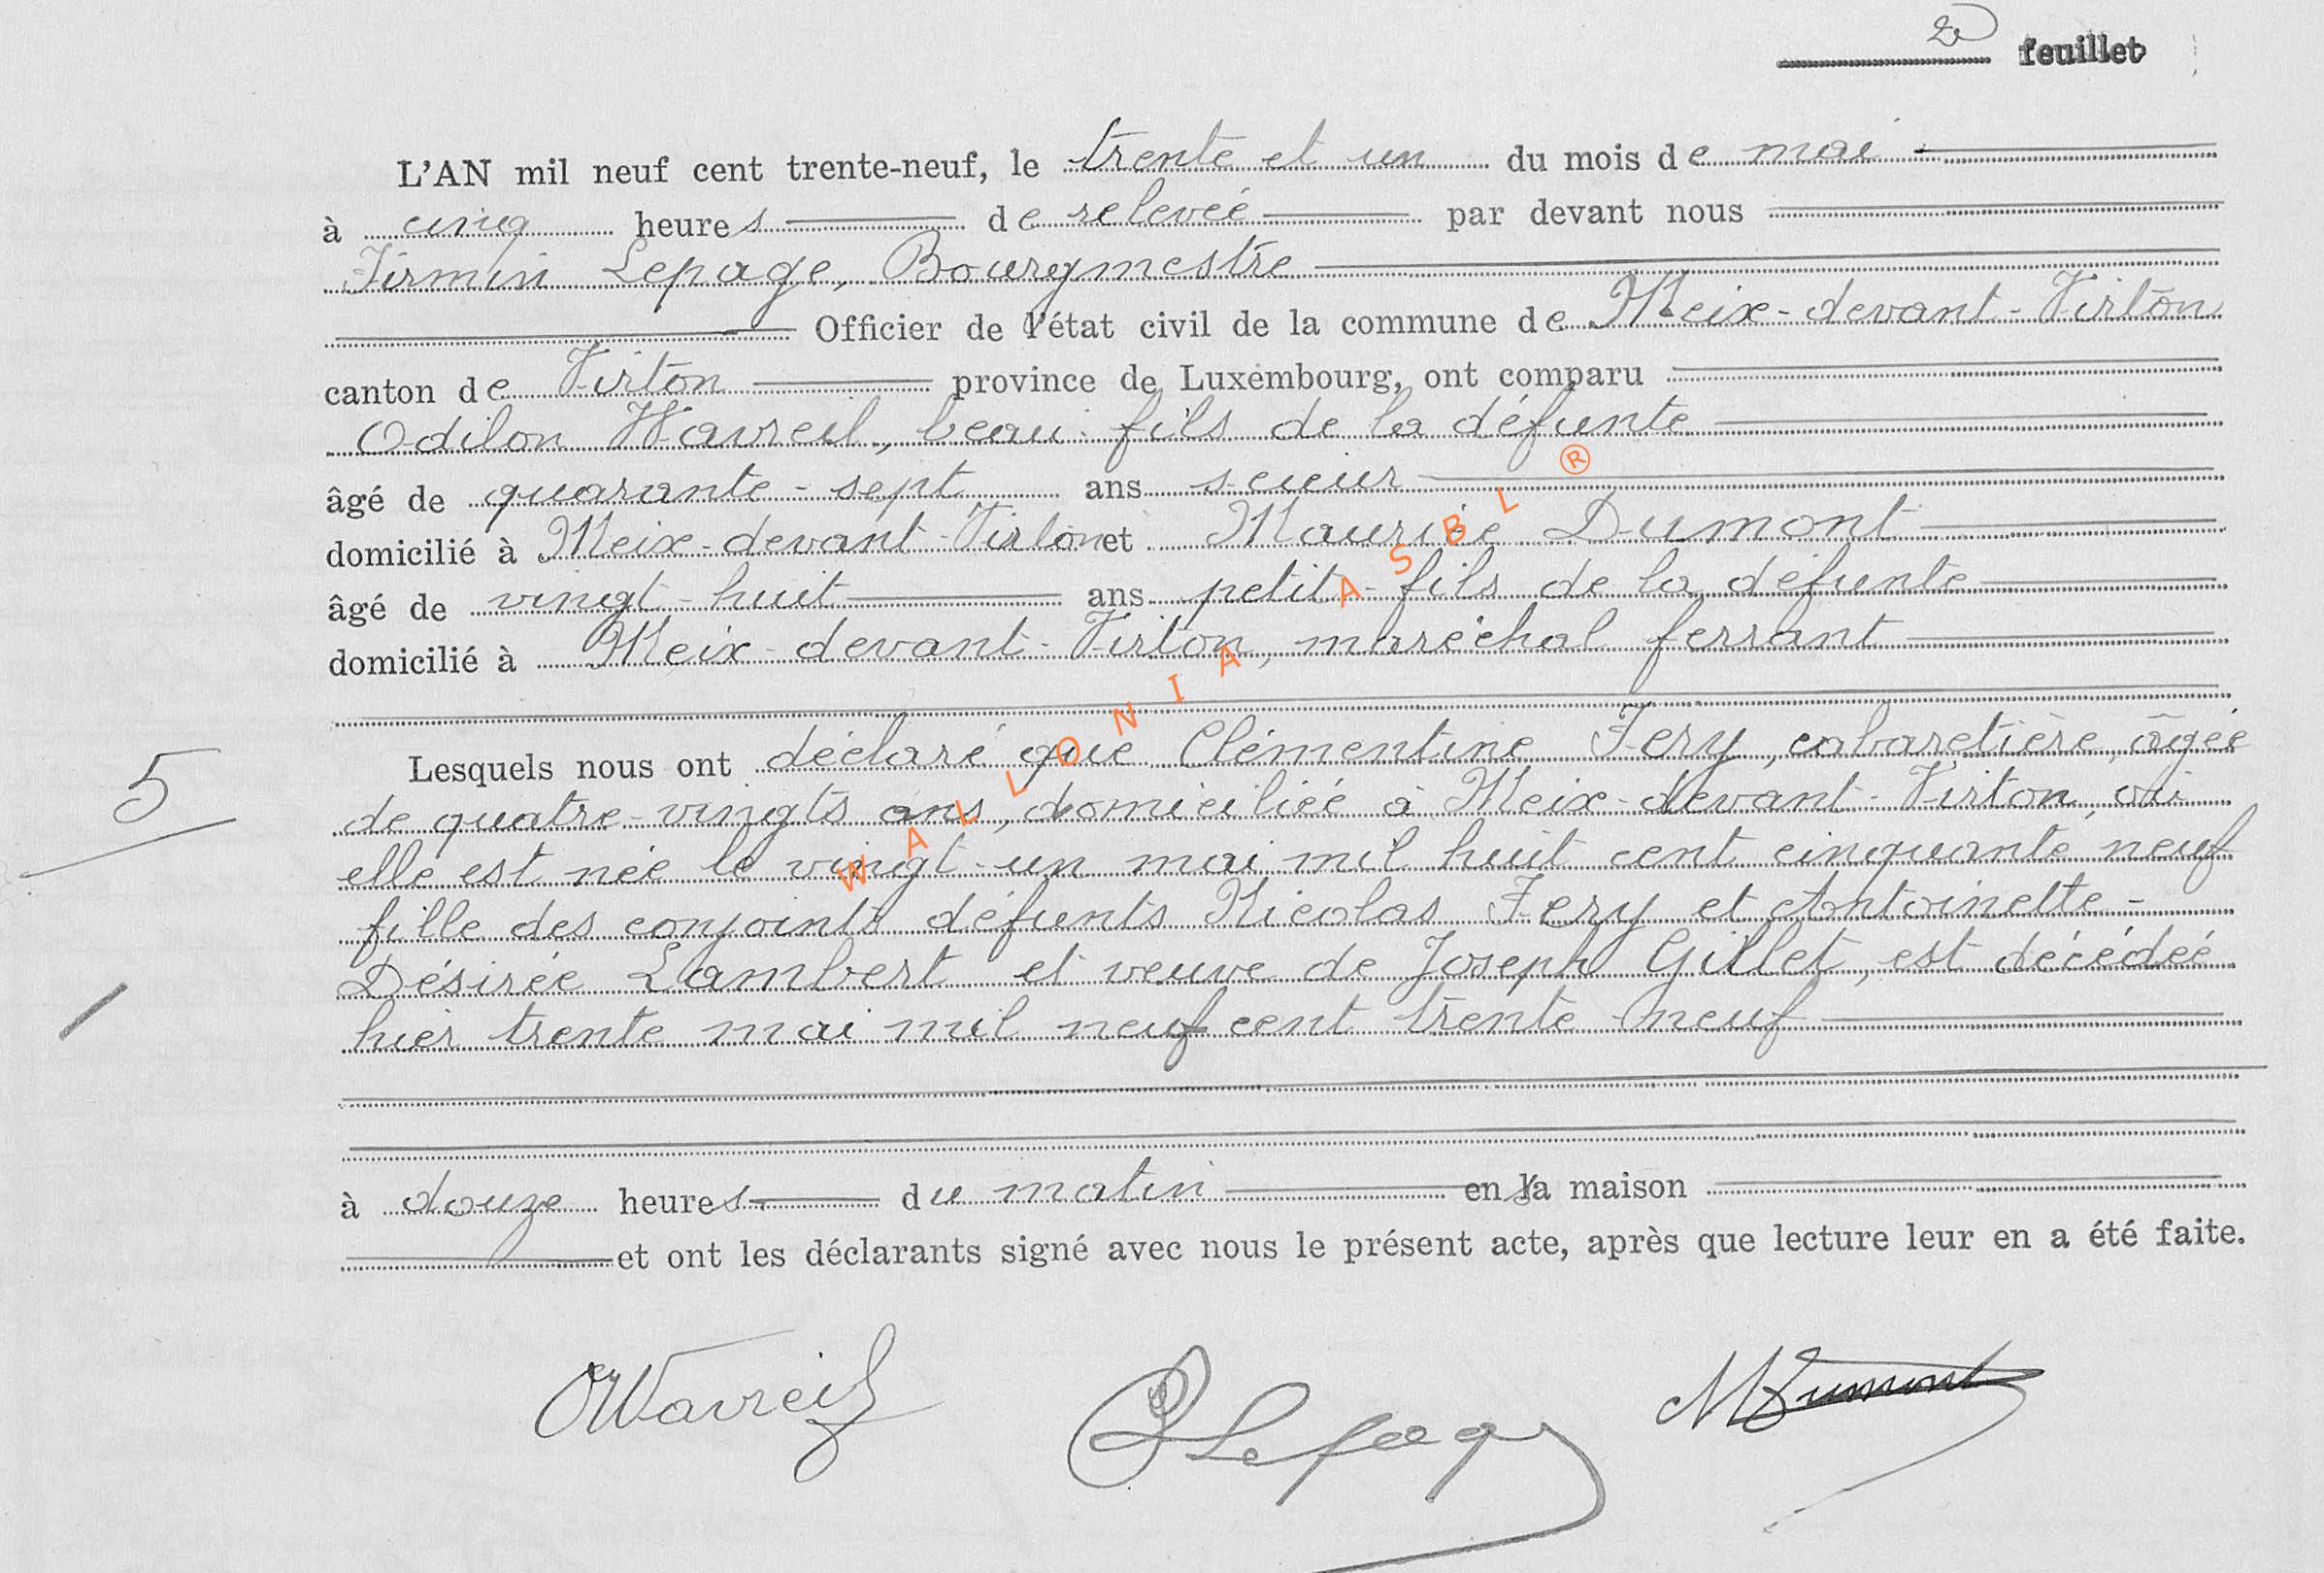 2e feuillet
L'AN mil neuf cent trente-neuf, le trente et un du mois de mai
à cinq heures de relevée par devant nous
Firmin Lepage, Bourgmestre
Officier de l'état civil de la commune de Meix-devant-Virton
canton de Virton province de Luxembourg, ont comparu
Odilon Wavreil, beau-fils de la défunte
âgé de quarante-sept ans scieur
domicilié à Meix-devant-Virton et Maurice Dumont
âgé de vingt-huit ans petit-fils de la défunte
domicilié à Meix-devant-Virton, maréchal ferrant
5
Lesquels nous ont déclaré que Clémentine Fery, cabaretière, âgée
de quatre-vingts ans, domiciliée à Meix-devant-Virton, où
elle est née le vingt-un mai mil huit cent cinquante neuf
fille des conjoints défunts Nicolas Fery et Antoinette-
Désirée Lambert et veuve de Joseph Gillet, est décédée
hier trente mai mil neuf cent trente neuf
à douze heures du matin en sa maison
et ont les déclarants signé avec nous le présent acte, après que lecture leur en a été faite.
OWavreil
FLepage
MDumont
WALLONIA ASBL ®